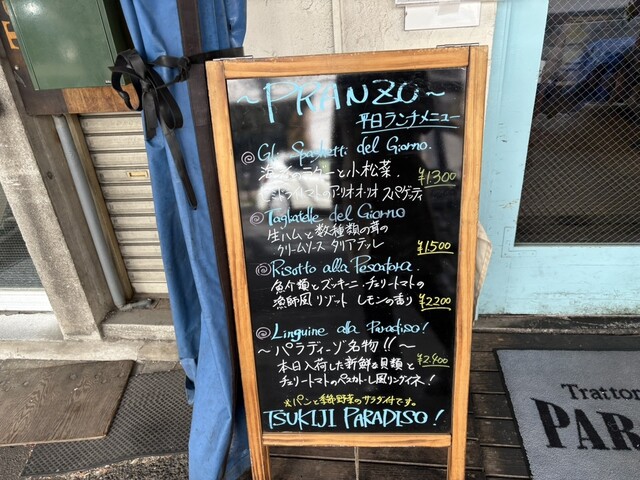 ~PRANZO~
平日ランチメニュー
Gli Spaghetti del Giorno.
と小松菜.
ドライトマトのアーリオ・オーリオ スパゲッティ
¥1,300
Tagliatelle del Giorno
生ハムと数種類の茸の
クリームソース タリアテッレ
¥1,500
Risotto alla Pescatora.
魚介類とズッキーニ・チェリートマトの
漁師風リゾット レモンの香り
¥2,200
Linguine alla Paradiso!
~パラディーゾ名物!!~
本日入荷した新鮮な貝類と
チェリートマトのペスカトーレ風リングイネ!
¥2,400
※パンと季節野菜のサラダ付です。
TSUKIJI PARADISO!
Trattor
PAR